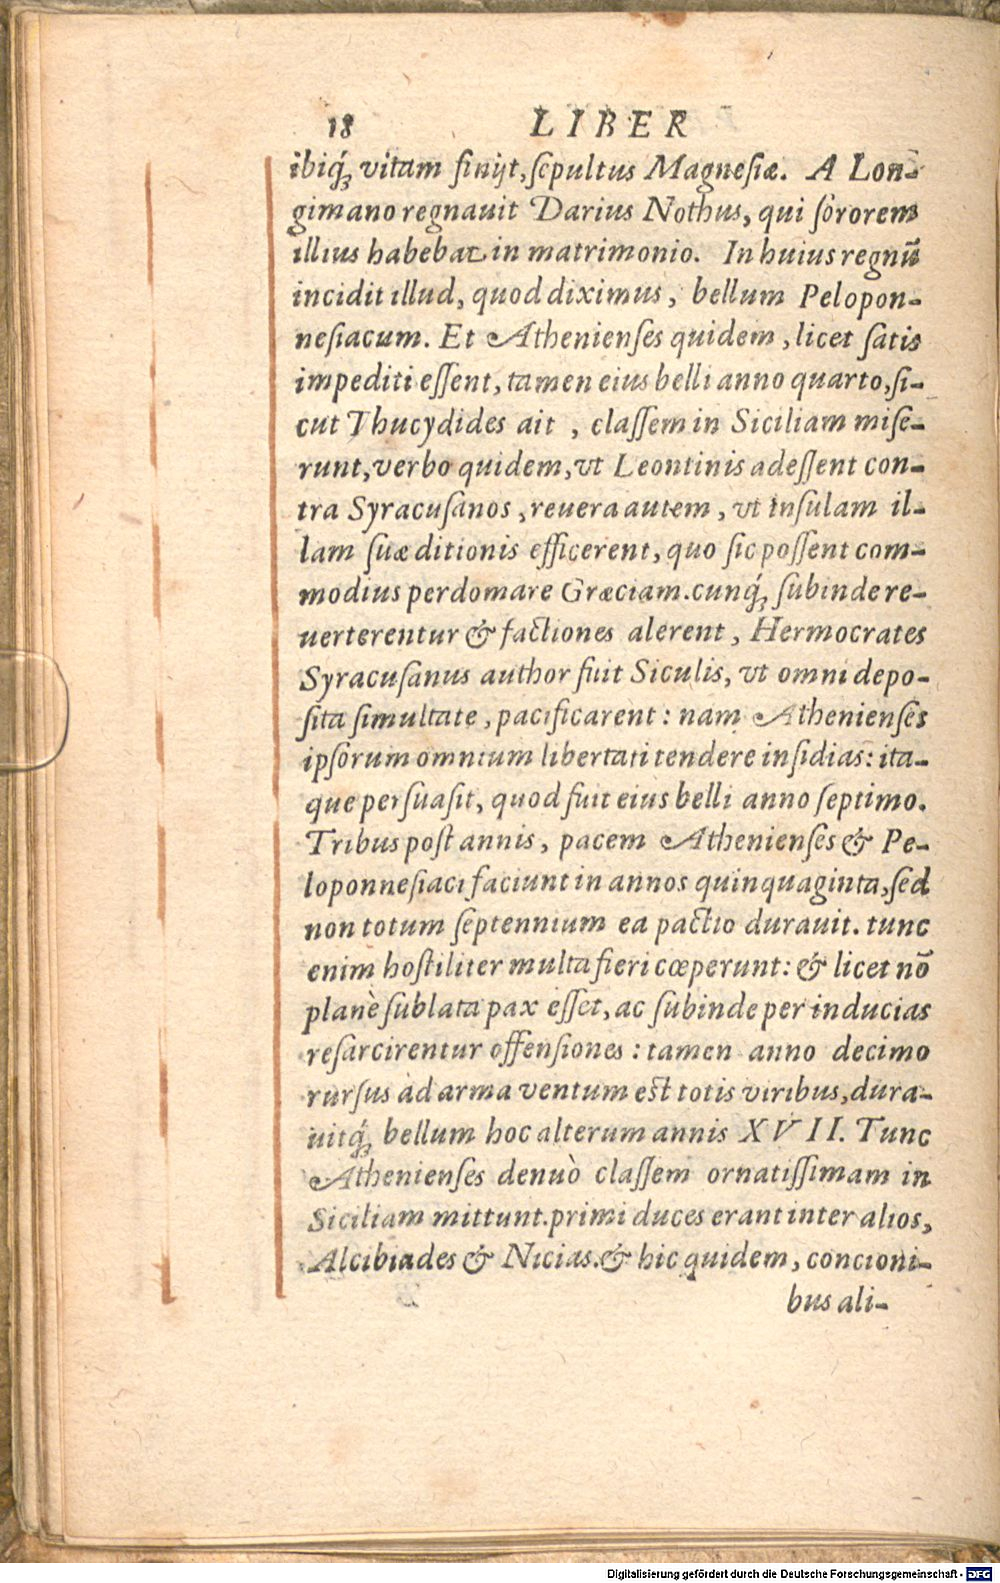 18 LIBER
ibiq́ꝫ vitam finijt, ſepultus Magneſiæ. A Lon-
gimano regnauit Darius Nothus, qui ſororem
illius habebat in matrimonio. In huius regnũ
incidit illud, quod diximus, bellum Pelopon-
neſiacum. Et Athenienſes quidem, licet ſatis
impediti eſſent, tamen eius belli anno quarto, ſi-
cut Thucydides ait, claſſem in Siciliam miſe-
runt, verbo quidem, vt Leontinis adeſſent con-
tra Syracuſanos, reuera autem, vt inſulam il-
lam ſuæ ditionis efficerent, quo ſic poſſent com-
modius perdomare Græciam. cunq́ꝫ ſubinde re-
uerterentur & factiones alerent, Hermocrates
Syracuſanus author fuit Siculis, vt omni depo-
ſita ſimultate, pacificarent: nam Athenienſes
ipſorum omnium libertati tendere inſidias: ita-
que perſuaſit, quod fuit eius belli anno ſeptimo.
Tribus poſt annis, pacem Athenienſes & Pe-
loponneſiaci faciunt in annos quinquaginta, ſed
non totum ſeptennium ea pactio durauit. tunc
enim hoſtiliter multa fieri cœperunt: & licet nõ
planè ſublata pax eſſet, ac ſubinde per inducias
reſarcirentur offenſiones: tamen anno decimo
rurſus ad arma ventum eſt totis viribus, dura-
uitq́ꝫ bellum hoc alterum annis XVII. Tunc
Athenienſes denuò claſſem ornatiſſimam in
Siciliam mittunt. primi duces erant inter alios,
Alcibiades & Nicias. & hic quidem, concioni-
bus ali-
Digitalisierung gefördert durch die Deutsche Forschungsgemeinschaft - DFG